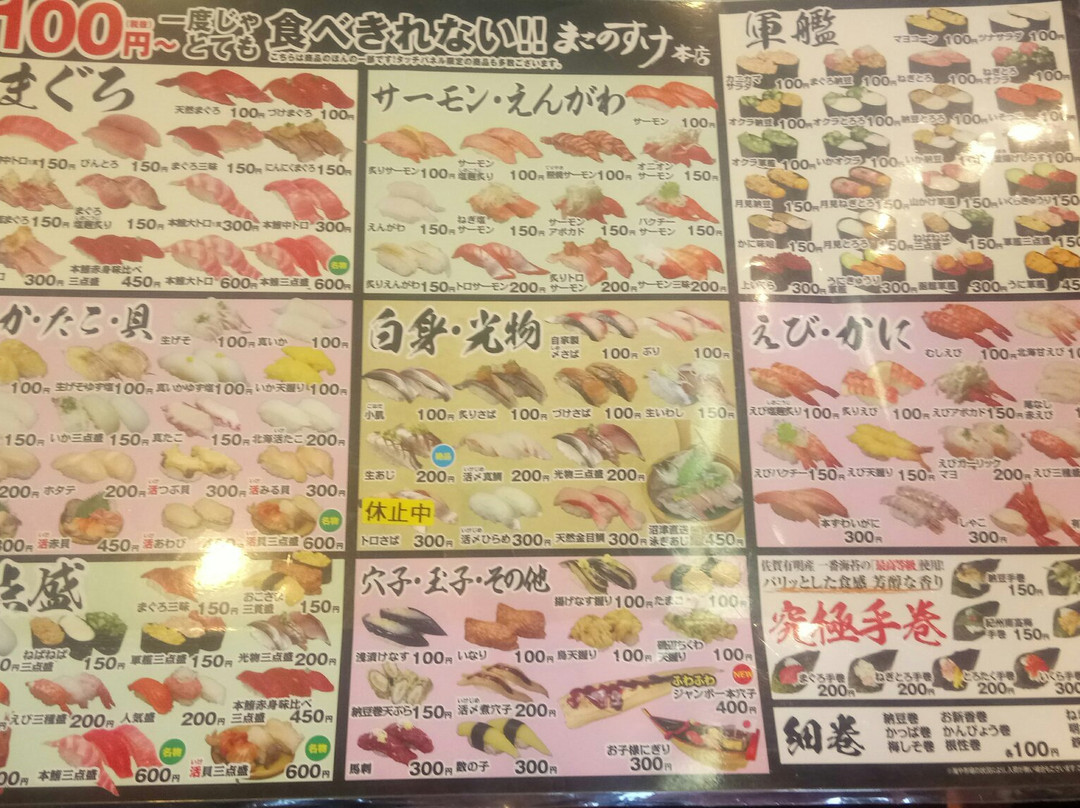 100円～
(税抜)
一度じゃ
とても
食べきれない!!
まごのすけ本店
こちらは商品のほんの一部です!タッチパネル限定の商品も多数ございます。
まぐろ
天然まぐろ 100円
づけまぐろ 100円
150円
びんとろ 150円
まぐろ三味 150円
にんにくまぐろ 150円
150円
まぐろ塩麹炙り 150円
本鮪大トロ 300円
本鮪中トロ 300円
300円
本鮪赤身味比べ三点盛 450円
本鮪大トロ 600円
本鮪三点盛 600円
名物
サーモン・えんがわ
サーモン 100円
炙りサーモン 100円
サーモン塩麹炙り 100円
照焼サーモン 100円
オニオンサーモン 150円
えんがわ 150円
ねぎ塩サーモン 150円
サーモンアボカド 150円
パクチーサーモン 150円
炙りえんがわ 150円
トロサーモン 200円
炙りトロサーモン 200円
サーモン三味 200円
軍艦
マヨコーン 100円
ツナサラダ
カニカマサラダ 100円
まぐろ納豆 100円
ねぎとろ 100円
ねぎとろオクラ
オクラ納豆 100円
オクラとろろ 100円
納豆とろろ 100円
オクラ軍艦 100円
いかオクラ 100円
いか納豆 100円
100円
月見納豆 150円
月見ねぎとろ 150円
山かけ軍艦 150円
いくらきゅうり 150円
かに味噌 150円
月見とろろ 150円
ねばねば三点盛 150円
軍艦三点盛 150円
上いくら 300円
うにきゅうり軍艦 300円
函館軍艦 300円
うに軍艦 450
か・たこ・貝
生げそ 100円
真いか 100円
100円
生げそゆず塩 100円
真いかゆず塩 100円
いか天握り 100円
150円
いか三点盛 150円
真たこ 150円
北海活たこ 200円
200円
ホタテ 200円
活つぶ貝 300円
活みる貝 300円
300円
活赤貝 450円
活あわび
活貝三点盛 600円
名物
白身・光物
自家製〆さば 100円
ぶり 100円
小肌 100円
炙りさば 100円
づけさば 100円
生いわし 150円
生あじ 200円
絶品
活〆真鯛 200円
光物三点盛 200円
休止中
トロさば 300円
活〆ひらめ 300円
天然金目鯛 300円
沼津直送泳ぎあじ 450円
えび・かに
むしえび 100円
北海甘えび 10
えび塩麹炙り 100円
炙りえび 100円
えびアボカド 150円
尾なし赤えび
えびパクチー 150円
えび天握り 150円
えびガーリックマヨ 200円
えび三種盛
本ずわいがに 300円
しゃこ 300円
点盛
まぐろ三味 150円
おこさま三貫盛 150円
ねばねば三点盛 150円
軍艦三点盛 150円
光物三点盛 200円
えび三種盛 200円
人気盛 200円
本鮪赤身味比べ三点盛 450円
本鮪三点盛 600円
名物
活貝三点盛 600円
名物
穴子・玉子・その他
揚げなす握り 100円
たまご
浅漬けなす 100円
いなり 100円
鳥天握り 100円
磯辺ちくわ天握り 100円
納豆巻天ぷら 150円
活〆煮穴子 200円
ふわふわ
ジャンボ一本穴子 400円
NEW
馬刺 300円
数の子 300円
お子様にぎり 300円
佐賀有明産 一番海苔の「最高等級」使用!
パリッとした食感 芳醇な香り
究極手巻
納豆手巻 150円
紀州南高梅手巻 150円
まぐろ手巻 200円
ねぎとろ手巻 200円
とろたく手巻 200円
いくら手巻 300
細巻
納豆巻 お新香巻
かっぱ巻 かんぴょう巻
梅しそ巻 根性巻
各100円